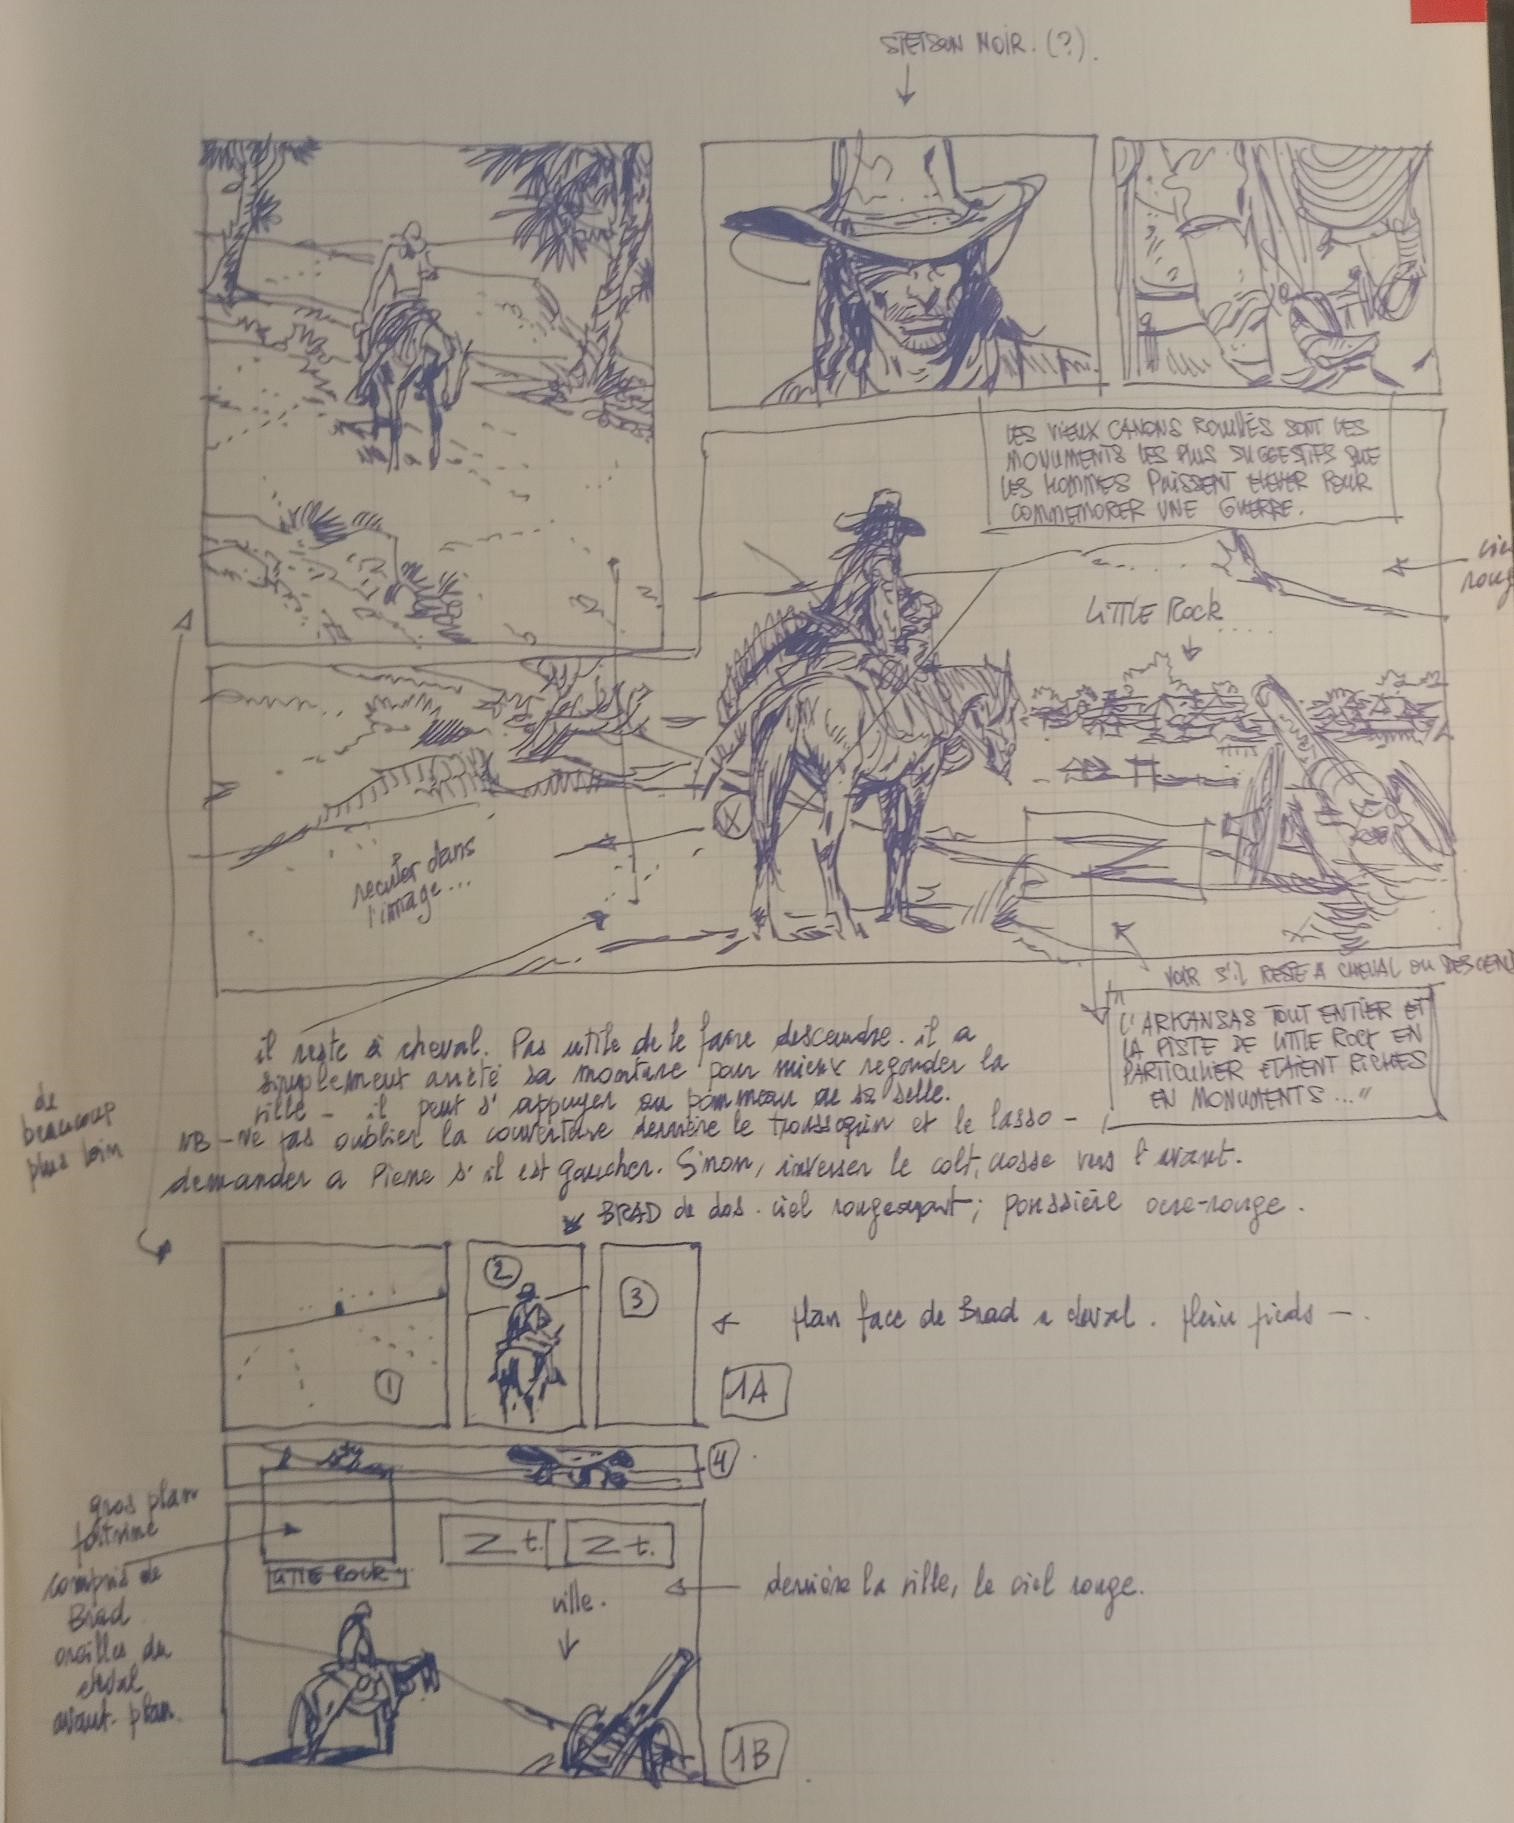 STETSON NOIR. (?).
LES VIEUX CANONS ROUILLÉS SONT LES
MONUMENTS LES PLUS SUGGESTIFS QUE
LES HOMMES PUISSENT ELEVER POUR
COMMEMORER UNE GUERRE.
LITTLE ROCK
reculer dans
l'image...
VOIR S'IL RESTE A CHEVAL OU DESCEND
"L'ARKANSAS TOUT ENTIER ET
LA PISTE DE LITTLE ROCK EN
PARTICULIER ETAIENT RICHES
EN MONUMENTS..."
il reste à cheval. Pas utile de le faire descendre. il a
simplement arrêté sa monture pour mieux regarder la
ville - il peut s'appuyer au pommeau de sa selle.
NB - Ne pas oublier la couverture derrière le troussequin et le lasso -
demander a Pierre s'il est gaucher. Sinon, inverser le colt, crosse vers l'avant.
de
beaucoup
plus loin
BRAD de dos. ciel rougeoyant; poussière ocre-rouge.
1
2
3
plan face de Brad a cheval. plein pieds -.
1A
4
gros plan
poitrine
compris de
Brad
oreilles du
cheval
avant-plan.
LITTLE ROCK
Z t.
Z t.
ville.
derrière la ville, le ciel rouge.
1B